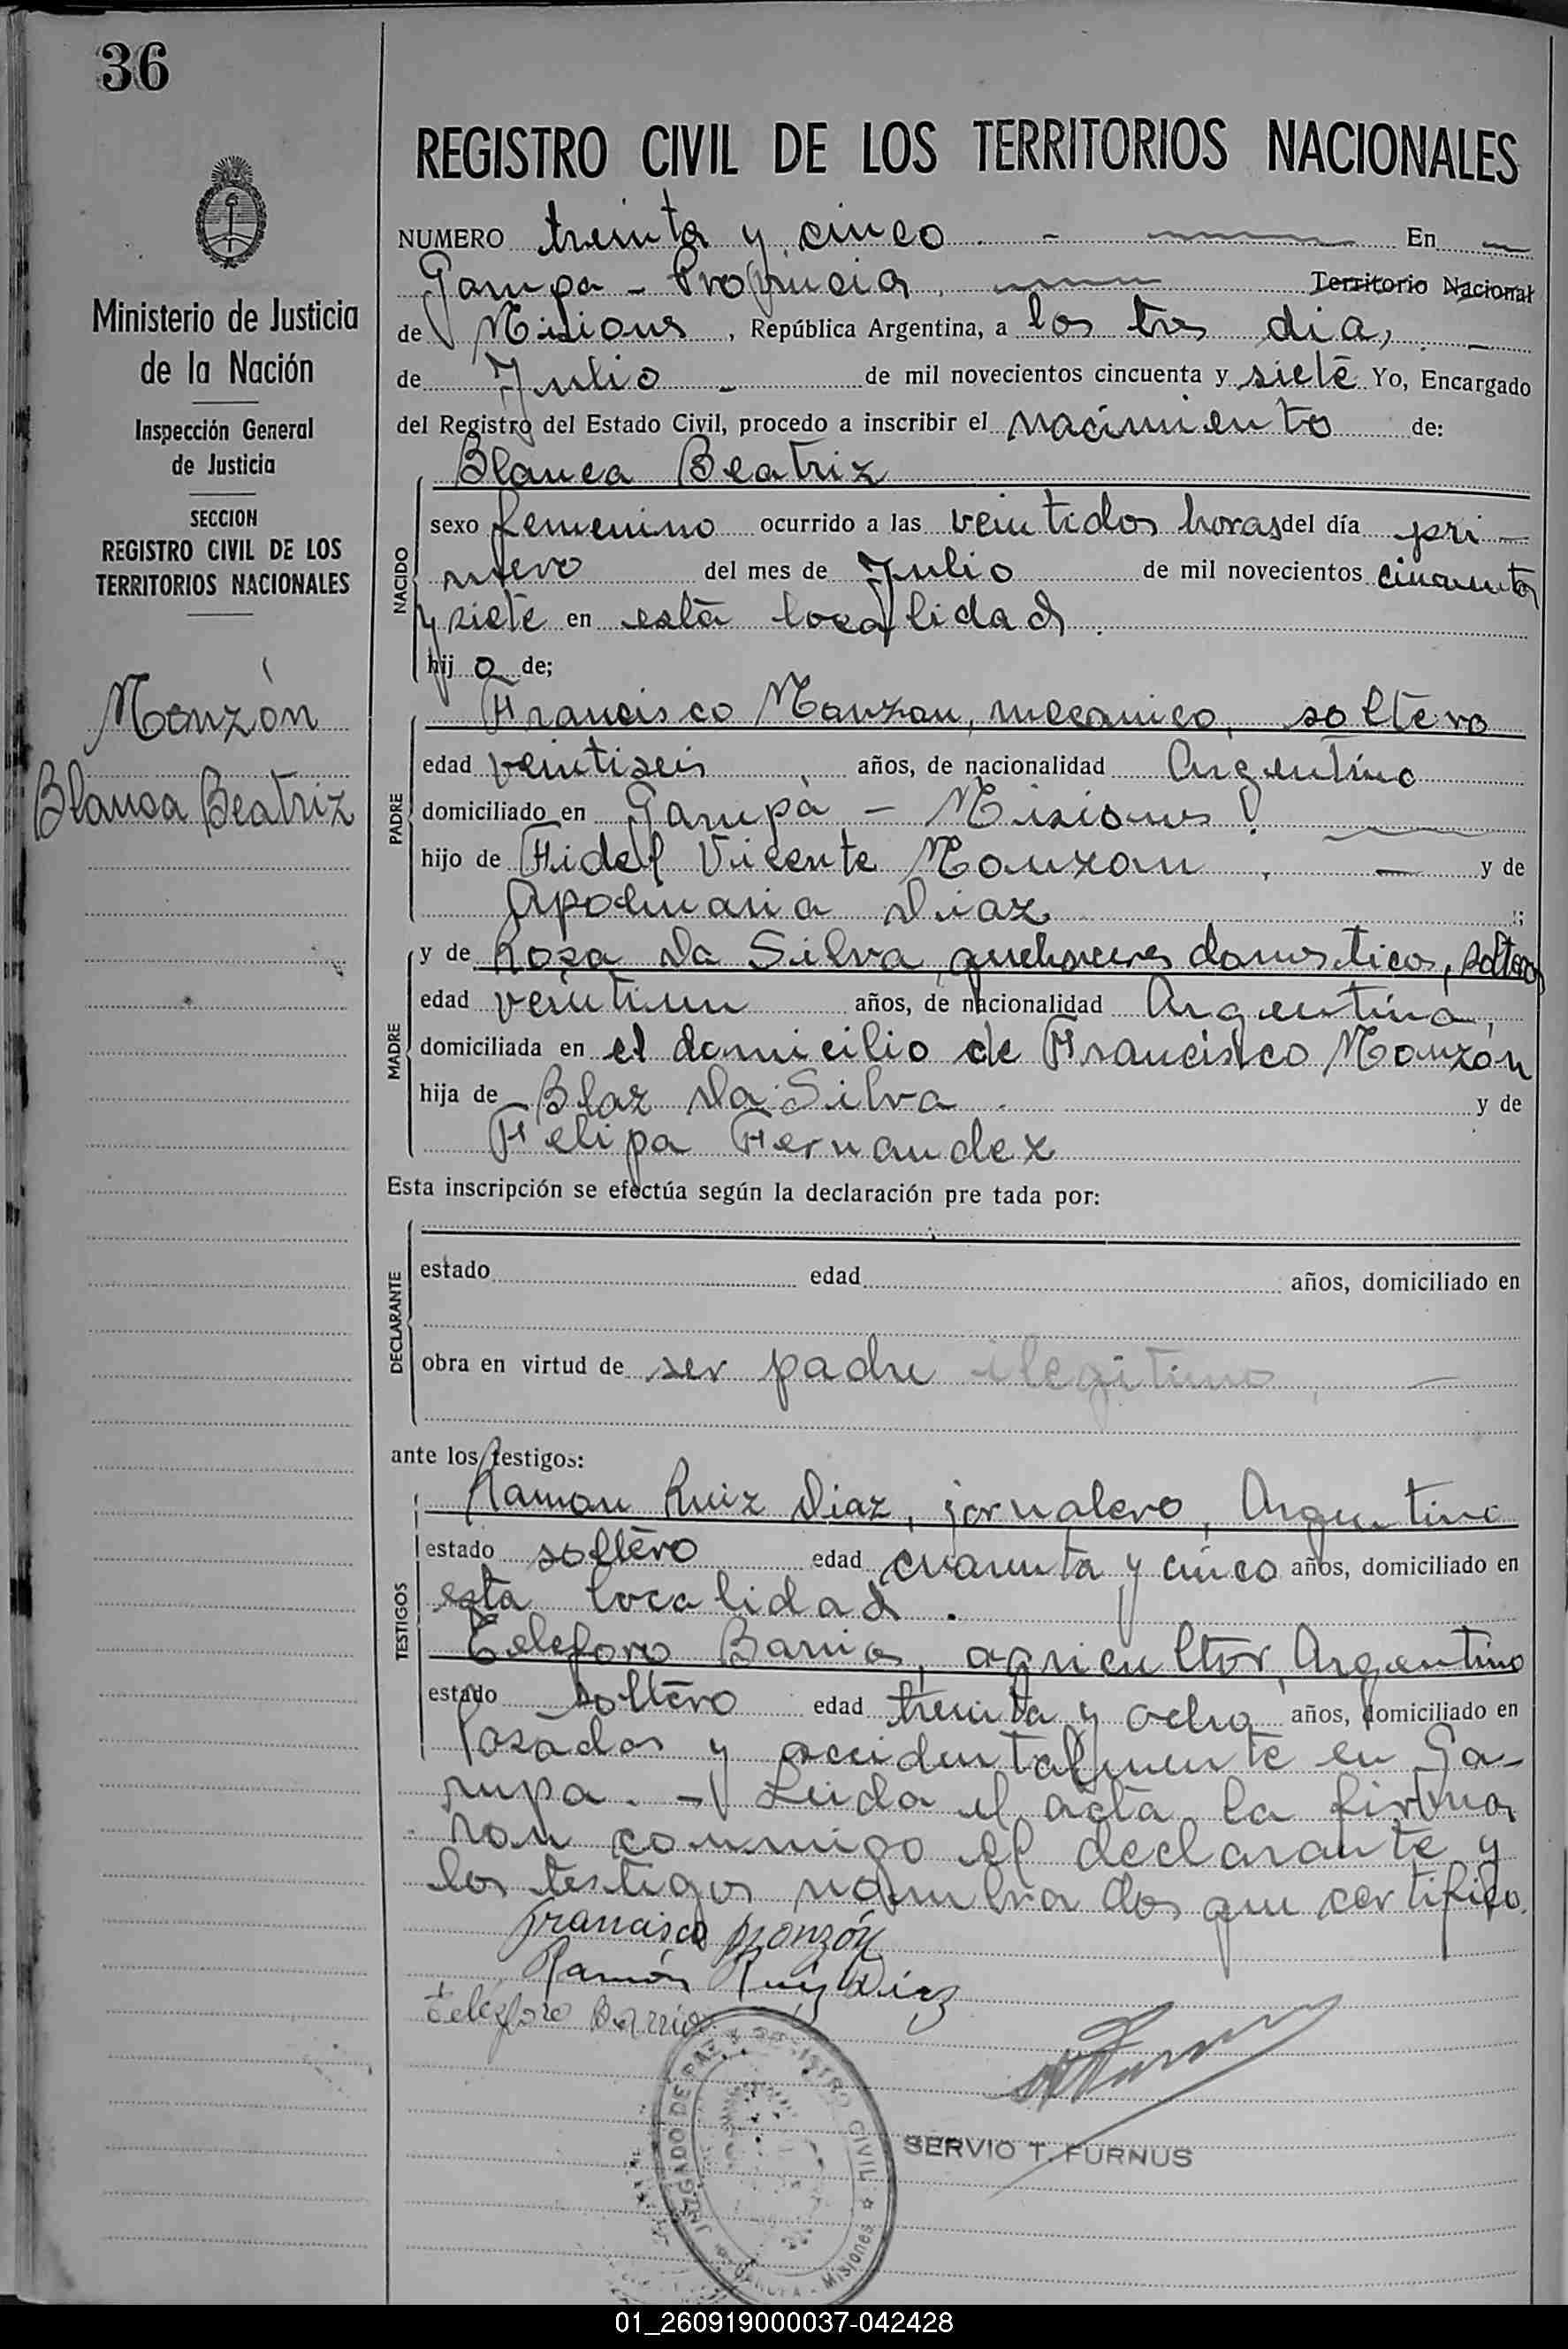 36
REGISTRO CIVIL DE LOS TERRITORIOS NACIONALES
Ministerio de Justicia
de la Nación
Inspección General
de Justicia
SECCION
REGISTRO CIVIL DE LOS
TERRITORIOS NACIONALES
Monzón
Blanca Beatriz
NUMERO treinta y cinco En
Garupa - Provincia Territorio Nacional
de Misiones, República Argentina, a los tres dia,
de Julio de mil novecientos cincuenta y siete Yo, Encargado
del Registro del Estado Civil, procedo a inscribir el nacimiento de:
Blanca Beatriz
NACIDO
sexo femenino ocurrido a las veintidos horas del día pri-
mero del mes de Julio de mil novecientos cincuenta
y siete en esta localidad.
hij a de;
PADRE
Francisco Monzon, mecanico, soltero
edad veintiseis años, de nacionalidad Argentino
domiciliado en Garupá - Misiones
hijo de Fidel Vicente Monzon y de
Apolinaria Diaz
MADRE
y de Rosa Da Silva, quehaceres domestico, soltera
edad veintiun años, de nacionalidad Argentina,
domiciliada en el domicilio de Francisco Monzón
hija de Blaz Da Silva y de
Felipa Fernandez
Esta inscripción se efectúa según la declaración pre tada por:
DECLARANTE
estado edad años, domiciliado en
obra en virtud de ser padre ilegitimo,
ante los testigos:
TESTIGOS
Ramon Ruiz Diaz, jornalero, Argentino
estado soltero edad cuarenta y cinco años, domiciliado en
esta localidad.
Telesforo Barrios, agricultor, Argentino
estado soltero edad treinta y ocho años, domiciliado en
Posadas y accidentalmente en Ga-
rupa. - Leida el acta la firma
ron conmigo el declarante y
los testigos nombrados que certifico.
Francisco Monzón
Ramón Ruiz Diaz
Telesforo Barrios
JUZGADO DE PAZ Y REGISTRO CIVIL
GARUPA - Misiones
SERVIO T. FURNUS
01_260919000037-042428